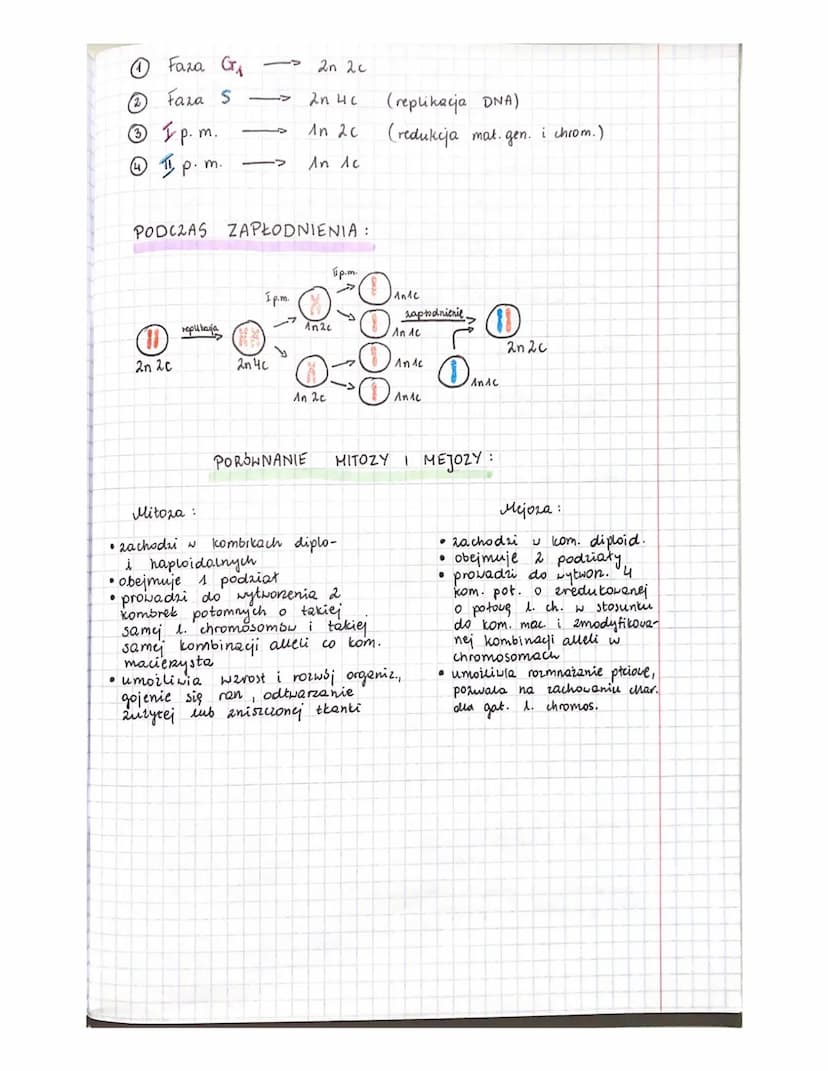 ① Faza G1 → 2n 2c
② Faza S → 2n 4c (replikacja DNA)
③ I p. m. → 1n 2c (redukcja mat. gen. i chrom.)
④ II p. m. → 1n 1c
PODCZAS ZAPŁODNIENIA :
II p.m.
I p.m.
1n1c
replikacja
1n2c
zapłodnienie
1n 1c
2n 2c
2n 4c
2n 2c
1n 1c
1n 2c
1n1c
1n1c
PORÓWNANIE MITOZY I MEJOZY :
Mitoza :
• zachodzi w komórkach diplo-
i haploidalnych
• obejmuje 1 podział
• prowadzi do wytworzenia 2
komórek potomnych o takiej
samej l. chromosomów i takiej
samej kombinacji alleli co kom.
macierzysta
• umożliwia wzrost i rozwój organiz.,
gojenie się ran, odtwarzanie
zużytej lub zniszczonej tkanki
Mejoza :
• zachodzi w kom. diploid.
• obejmuje 2 podziały
• prowadzi do wytworz. 4
kom. pot. o zredukowanej
o połowę l. ch. w stosunku
do kom. mac i zmodyfikowa-
nej kombinacji alleli w
chromosomach
• umożliwia rozmnażanie płciowe,
pozwala na zachowaniu char.
dla gat. l. chromos.